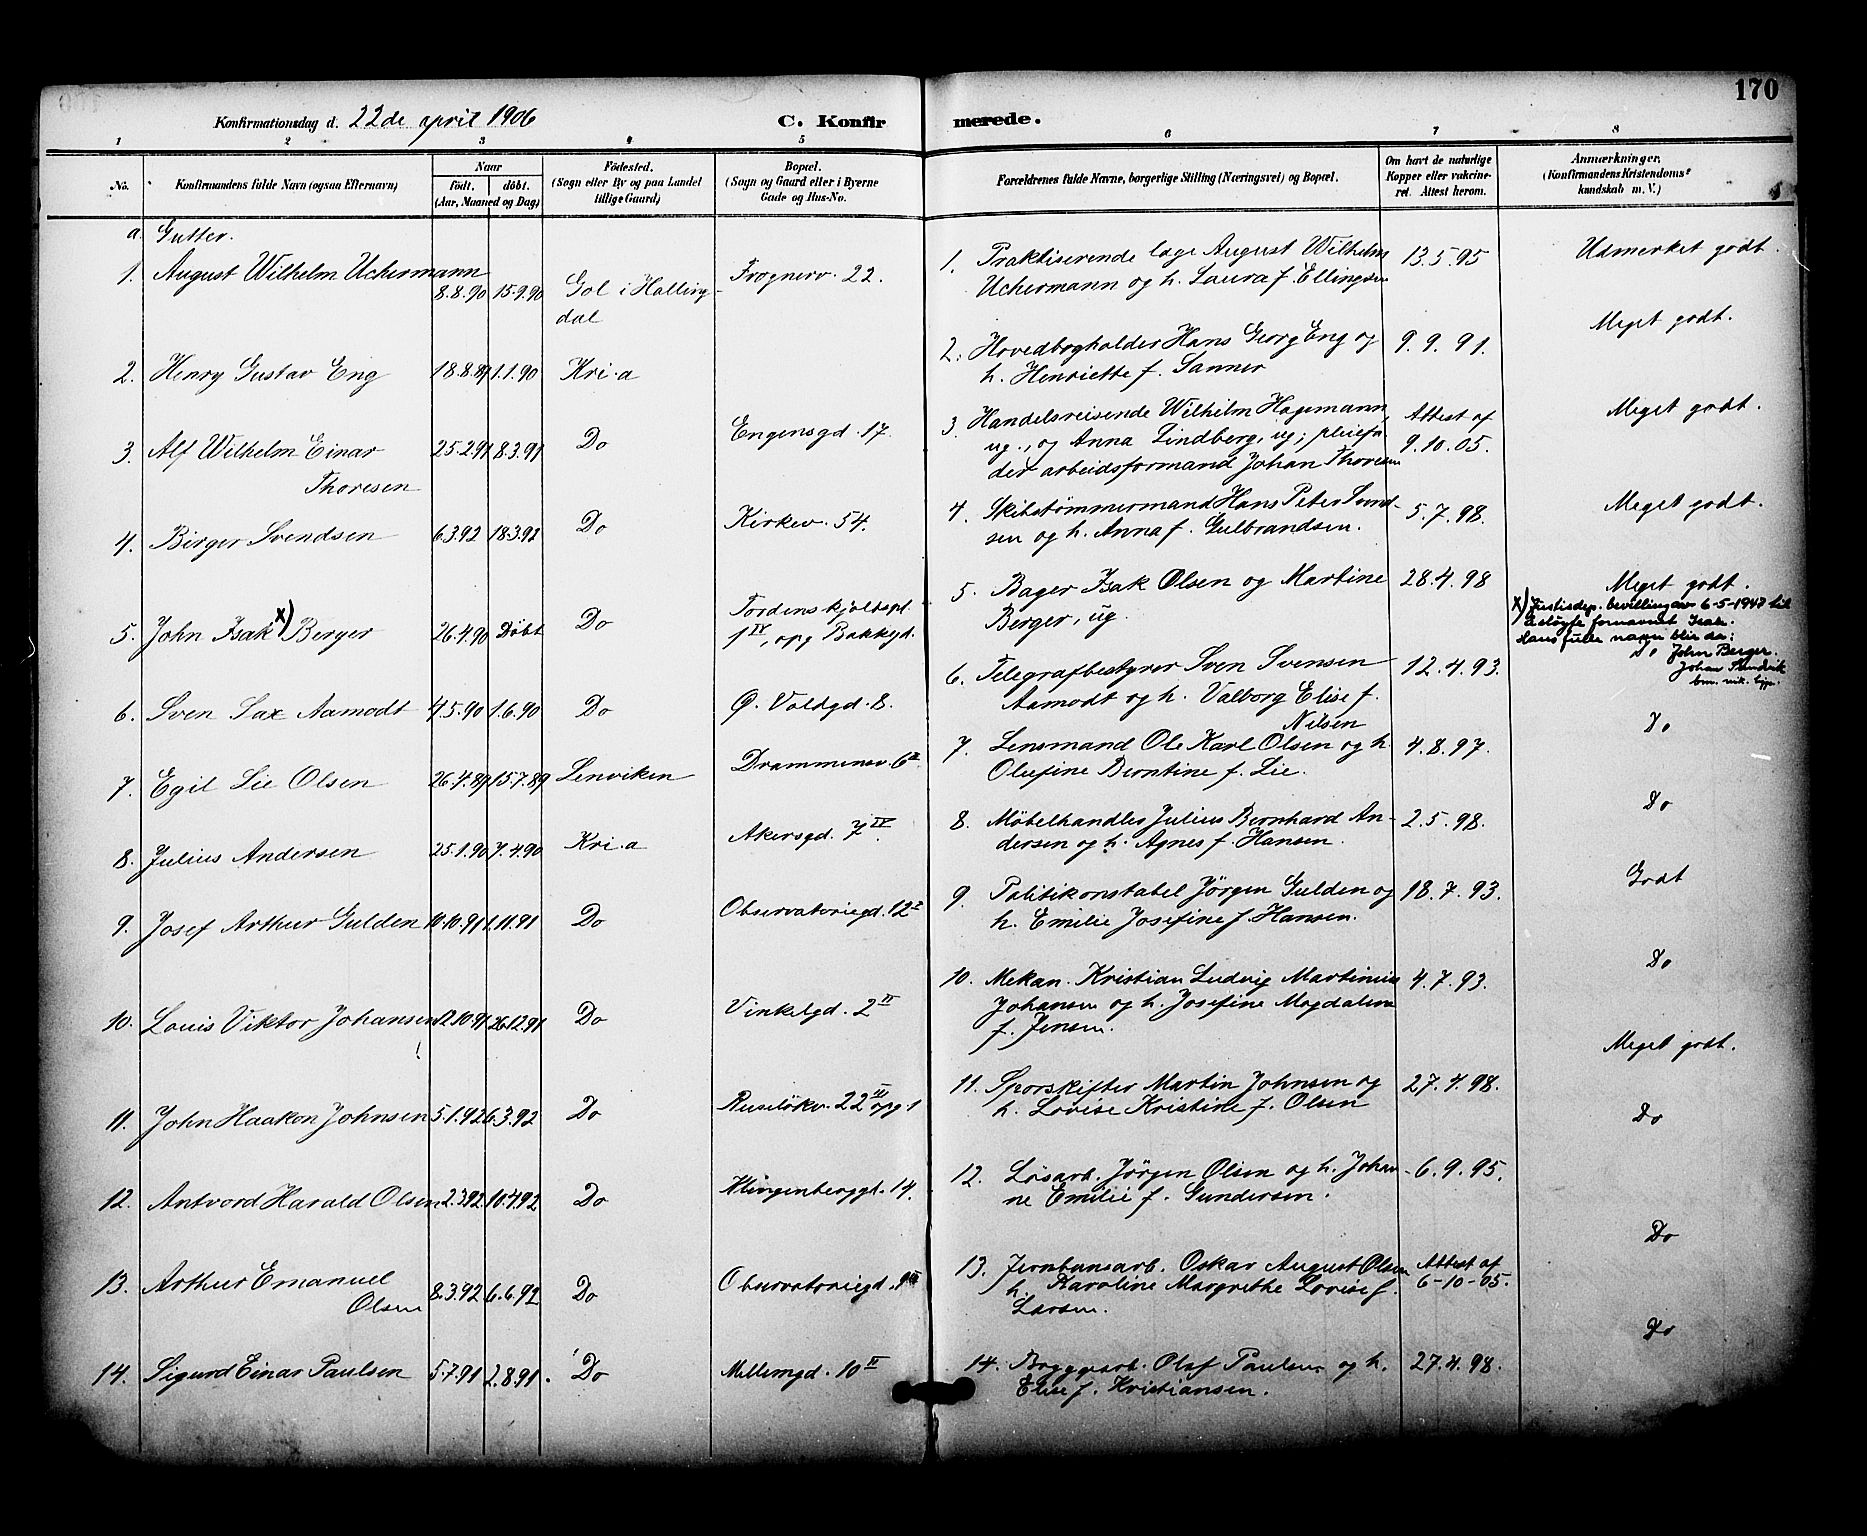 170
Konfirmationsdag d. 22de april 1906
C. Konfirmerede.
1 2 3 4 5 6 7 8
No.
Konfirmandens fulde Navn (ogsaa Efternavn)
Naar
født. døbt.
(Aar, Maaned og Dag)
Fødested.
(Sogn eller By og paa Landet
tillige Gaard)
Bopæl.
(Sogn og Gaard eller i Byerne
Gade og Hus-No.
Forældrenes fulde Navne, borgerlige Stilling (Næringsvei) og Bopæl.
Om havt de naturlige
Kopper eller vakcine-
ret. Attest herom.
Anmærkninger.
(Konfirmandens Kristendoms-
kundskab m. V.)
a. Gutter.
1. August Wilhelm Uchermann
8.8.90 15.9.90 Gol i Halling-
dal
Frognerv. 22.
1. Praktiserende læge August Wilhelm
Uchermann og h. Laura f. Ellingsen
13.5.95
Udmerket godt.
2. Henry Gustav Eng 18.8.89 1.1.90 Kri.a
2. Hovedbogholder Hans Georg Eng og
h. Henriette f. Sanner
9.9.91.
Meget godt.
3. Alf Wilhelm Einar
Thoresen
25.2.91 8.3.91 Do Engensgd. 17.
3. Handelsreisende Wilhelm Hagemann,
ug., og Anna Lindberg, ug; pleiefa-
der arbeidsformand Johan Thoresen
Attest af
9.10.05.
Meget godt.
4. Birger Svendsen 6.3.92 18.3.92 Do Kirkev. 54.
4. Skibstømmermand Hans Peter Svend-
sen og h. Anna f. Gulbrandsen.
5.7.98.
Meget godt.
5. John Isak x) Berger 26.4.90 Døbt Do Tordenskjoldspl.
1 IV, opg Bakkgd.
5. Bager Isak Olsen og Martine
Berger, ug.
28.4.98
Meget godt.
x) Justisdep. bevilling av 6-5-1947 til
at sløyfe fornavnet Isak.
Hans fulle navn blir da:
John Berger.
Johan
6. Sven Lax Aamodt 4.5.90 1.6.90 Do Ø. Voldgd. 8.
6. Telegrafbestyrer Sven Svensen
Aamodt og h. Valborg Elise f.
Nilsen
12.4.93.
Do
7. Egil Lie Olsen 26.4.89 15.7.89 Lenviken Drammensv. 6 II
7. Lensmand Ole Karl Olsen og h
Olufine Berntine f. Lie.
4.8.97.
Do
8. Julius Andersen 25.1.90 7.4.90 Kri.a Akersgd. 7 IV.
8. Møbelhandler Julius Bernhard An-
dersen og h. Agnes f. Hansen.
2.5.98.
Do
9. Josef Arthur Gulden 10.10.91 1.11.91 Do Observatoriegd. 12 I
9. Politikonstabel Jörgen Gulden og
h. Emilie Josefine f. Hansen.
18.7.93.
Godt
10. Louis Viktor Johansen 12.10.91 26.12.91 Do Vinkelgd. 2 II
10. Mekan. Kristian Ludvig Martinius
Johansen og h. Josefine Magdalene
f. Jensen.
4.7.93.
Do
11. John Haakon Johnsen 5.1.92 6.3.92 Do Ruseløkv. 22 II opg. 1
11. Sporskifter Martin Johnsen og
h. Lovise Kristine f. Olsen
27.4.98.
Meget godt.
12. Antvord Harald Olsen 2.3.92. 10.4.92 Do Klingenberggt. 14.
12. Løsarb. Jörgen Olsen og h. Johan-
ne Emilie f. Gundersen.
6.9.95.
Do
13. Arthur Emanuel
Olsen
8.3.92 6.6.92 Do Observatoriegd.
13. Jernbanearb. Oskar August Olsen
h. Karoline Margrethe Lovise f.
Larsen.
Attest af
6-10-05.
Do
14. Sigurd Einar Paulsen 5.7.91 2.8.91. Do Mellemgd. 10 II
14. Bryggearb. Olaf Paulsen og h.
Elise f. Kristiansen.
27.4.98.
Do